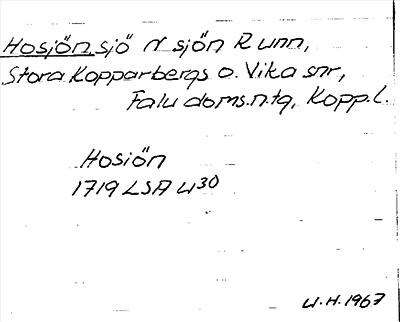 Hosjön, sjö N sjön Runn,
Stora Kopparbergs o. Vika snr,
Falu doms.n.tg, Kopp.l.
Hosiön
1719 LSA U30
U.H. 1967